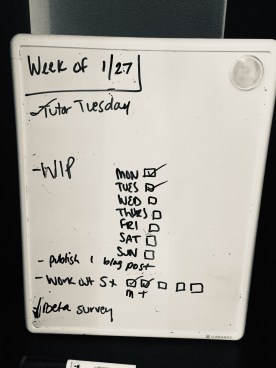 Week of 1/27
Tutor Tuesday
- WIP
MON
TUES
WED
THURS
FRI
SAT
SUN
- Publish 1 blog post
- Work out 5x
M T
Beta survey